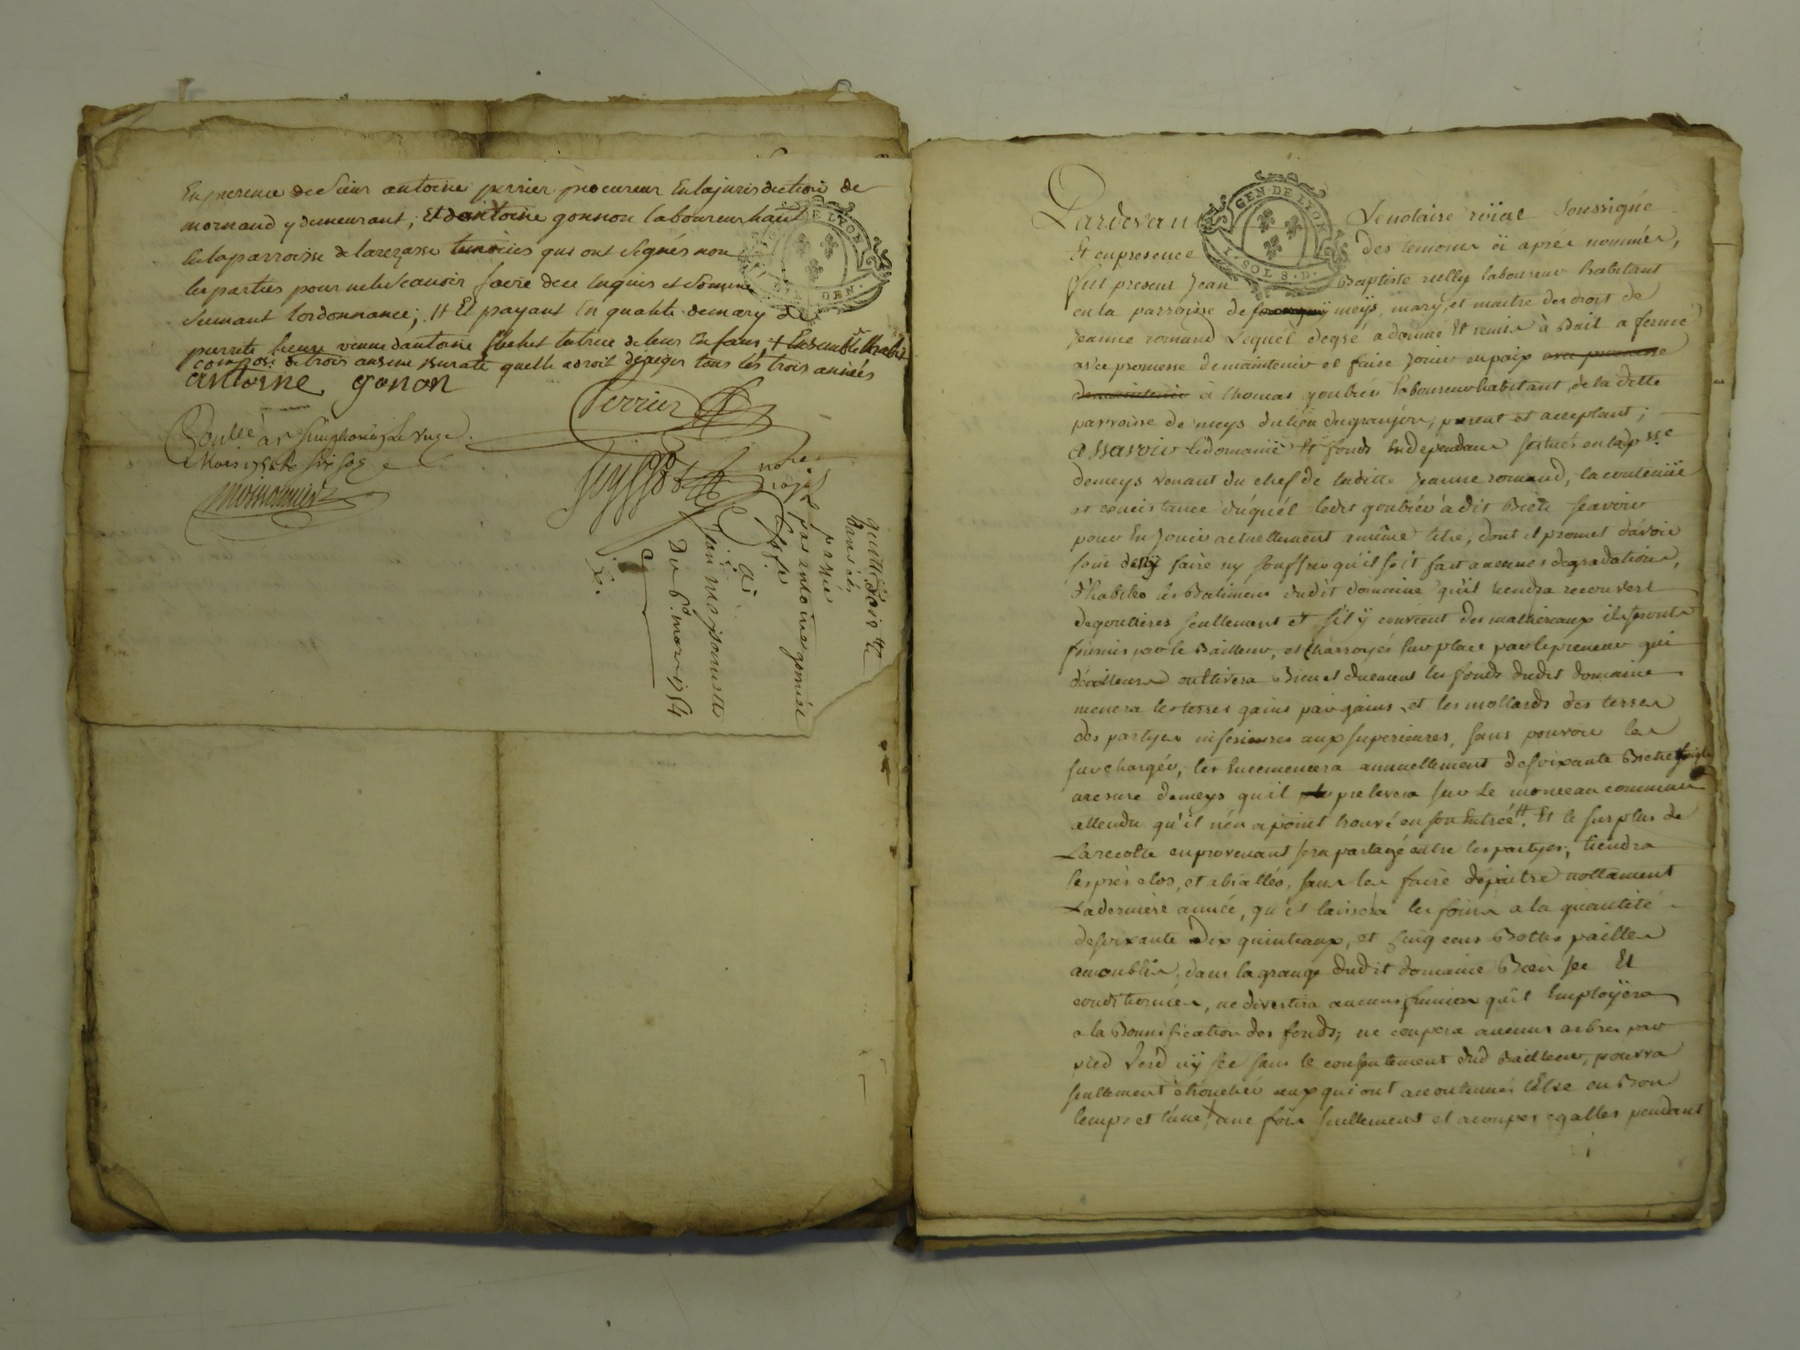 En presence de Sieur antoine perrier procureur En la jurisdiction de
mornand y demeurant; Et d'antoine gonnon laboureur habt
En la parroisse de larejasse temoins qui ont signés non
les parties pour ne le scavoir faire de ce Enquis et somme
suivant l'ordonnance; Et payant En qualité de mary de
pierrette veuve d'antoine tutrice de leur Enfans
de trois années quelle a droit d'exiger tous les trois années
antoine gonon
Perrier
Coulle a St Simphorien le
Mars 1754
nore
royal
quittance
passée
par antoine
a
jean
Du 6e mars 1754
GEN. DE LYON
SOLS. D.
Pardevant Le notaire roïal Soussigné
Et en presence des temoins ci apres nommés,
fut present Jean Baptiste rully laboureur habitant
en la parroisse de meys, mary, et maitre des droit de
Jeanne romand Lequel de gré a donné Et remis à Bail a ferme
avec promesse de maintenir et faire Jouir en paix avec promesse
de maintenir à thomas goubier laboureur habitant de la ditte
parroisse de meys du lieu du granjon, present et acceptant;
a Sçavoir Le domaine Et fonds En dependant scitués en la psse
de meys venant du chef de laditte Jeanne romand, la contenüe
et concistance duquél ledit goubier à dit Bien scavoir
pour En Jouir actuellement a même titre, dont il promet d'avoir
soin de ny faire ny souffrir qu'il soit fait aucunes degradations,
d'habiter les Batimens dudit domaine qu'il tiendra recouvert
de goutières seullement et s'il y convient des matheriaux ils seront
fournis par le Bailleur, et charroyés sur place par le preneur qui
d'ailleurs cultivera Bien et duement les fonds dudit domaine
menera les terres gains par gains, et les mollards des terres
des partyes inferieures aux superieures, sans pouvoir les
surchargér, les Encemencera annuellement de soixante Bichets
mesure de meys qu'il prelevera sur le monceau commun
attendu qu'il n'en a point trouvé en son Entrée. Et le surplus de
La recolte en provenant sera partagé entre les partyes; tiendra
les prés clos, et abiallés, sans les faire dépaitre nottament
La derniere année, qu'il laissera les foins a la quantité
de soixante Dix quinteaux, et cinq cens Bottes pailles
dans la grange dudit domaine Bien sec Et
conditionnés, ne divertira aucuns fumiers qu'il Employera
a la Bonnification des fonds, ne coupera aucuns arbres par
pied Verd ny sec sans le consentement dud Bailleur, pourra
seullement ébroucher ceux qui ont accoutumés l'Etre en Bon
temps et lune, une fois seullement et a coupes egalles pendant